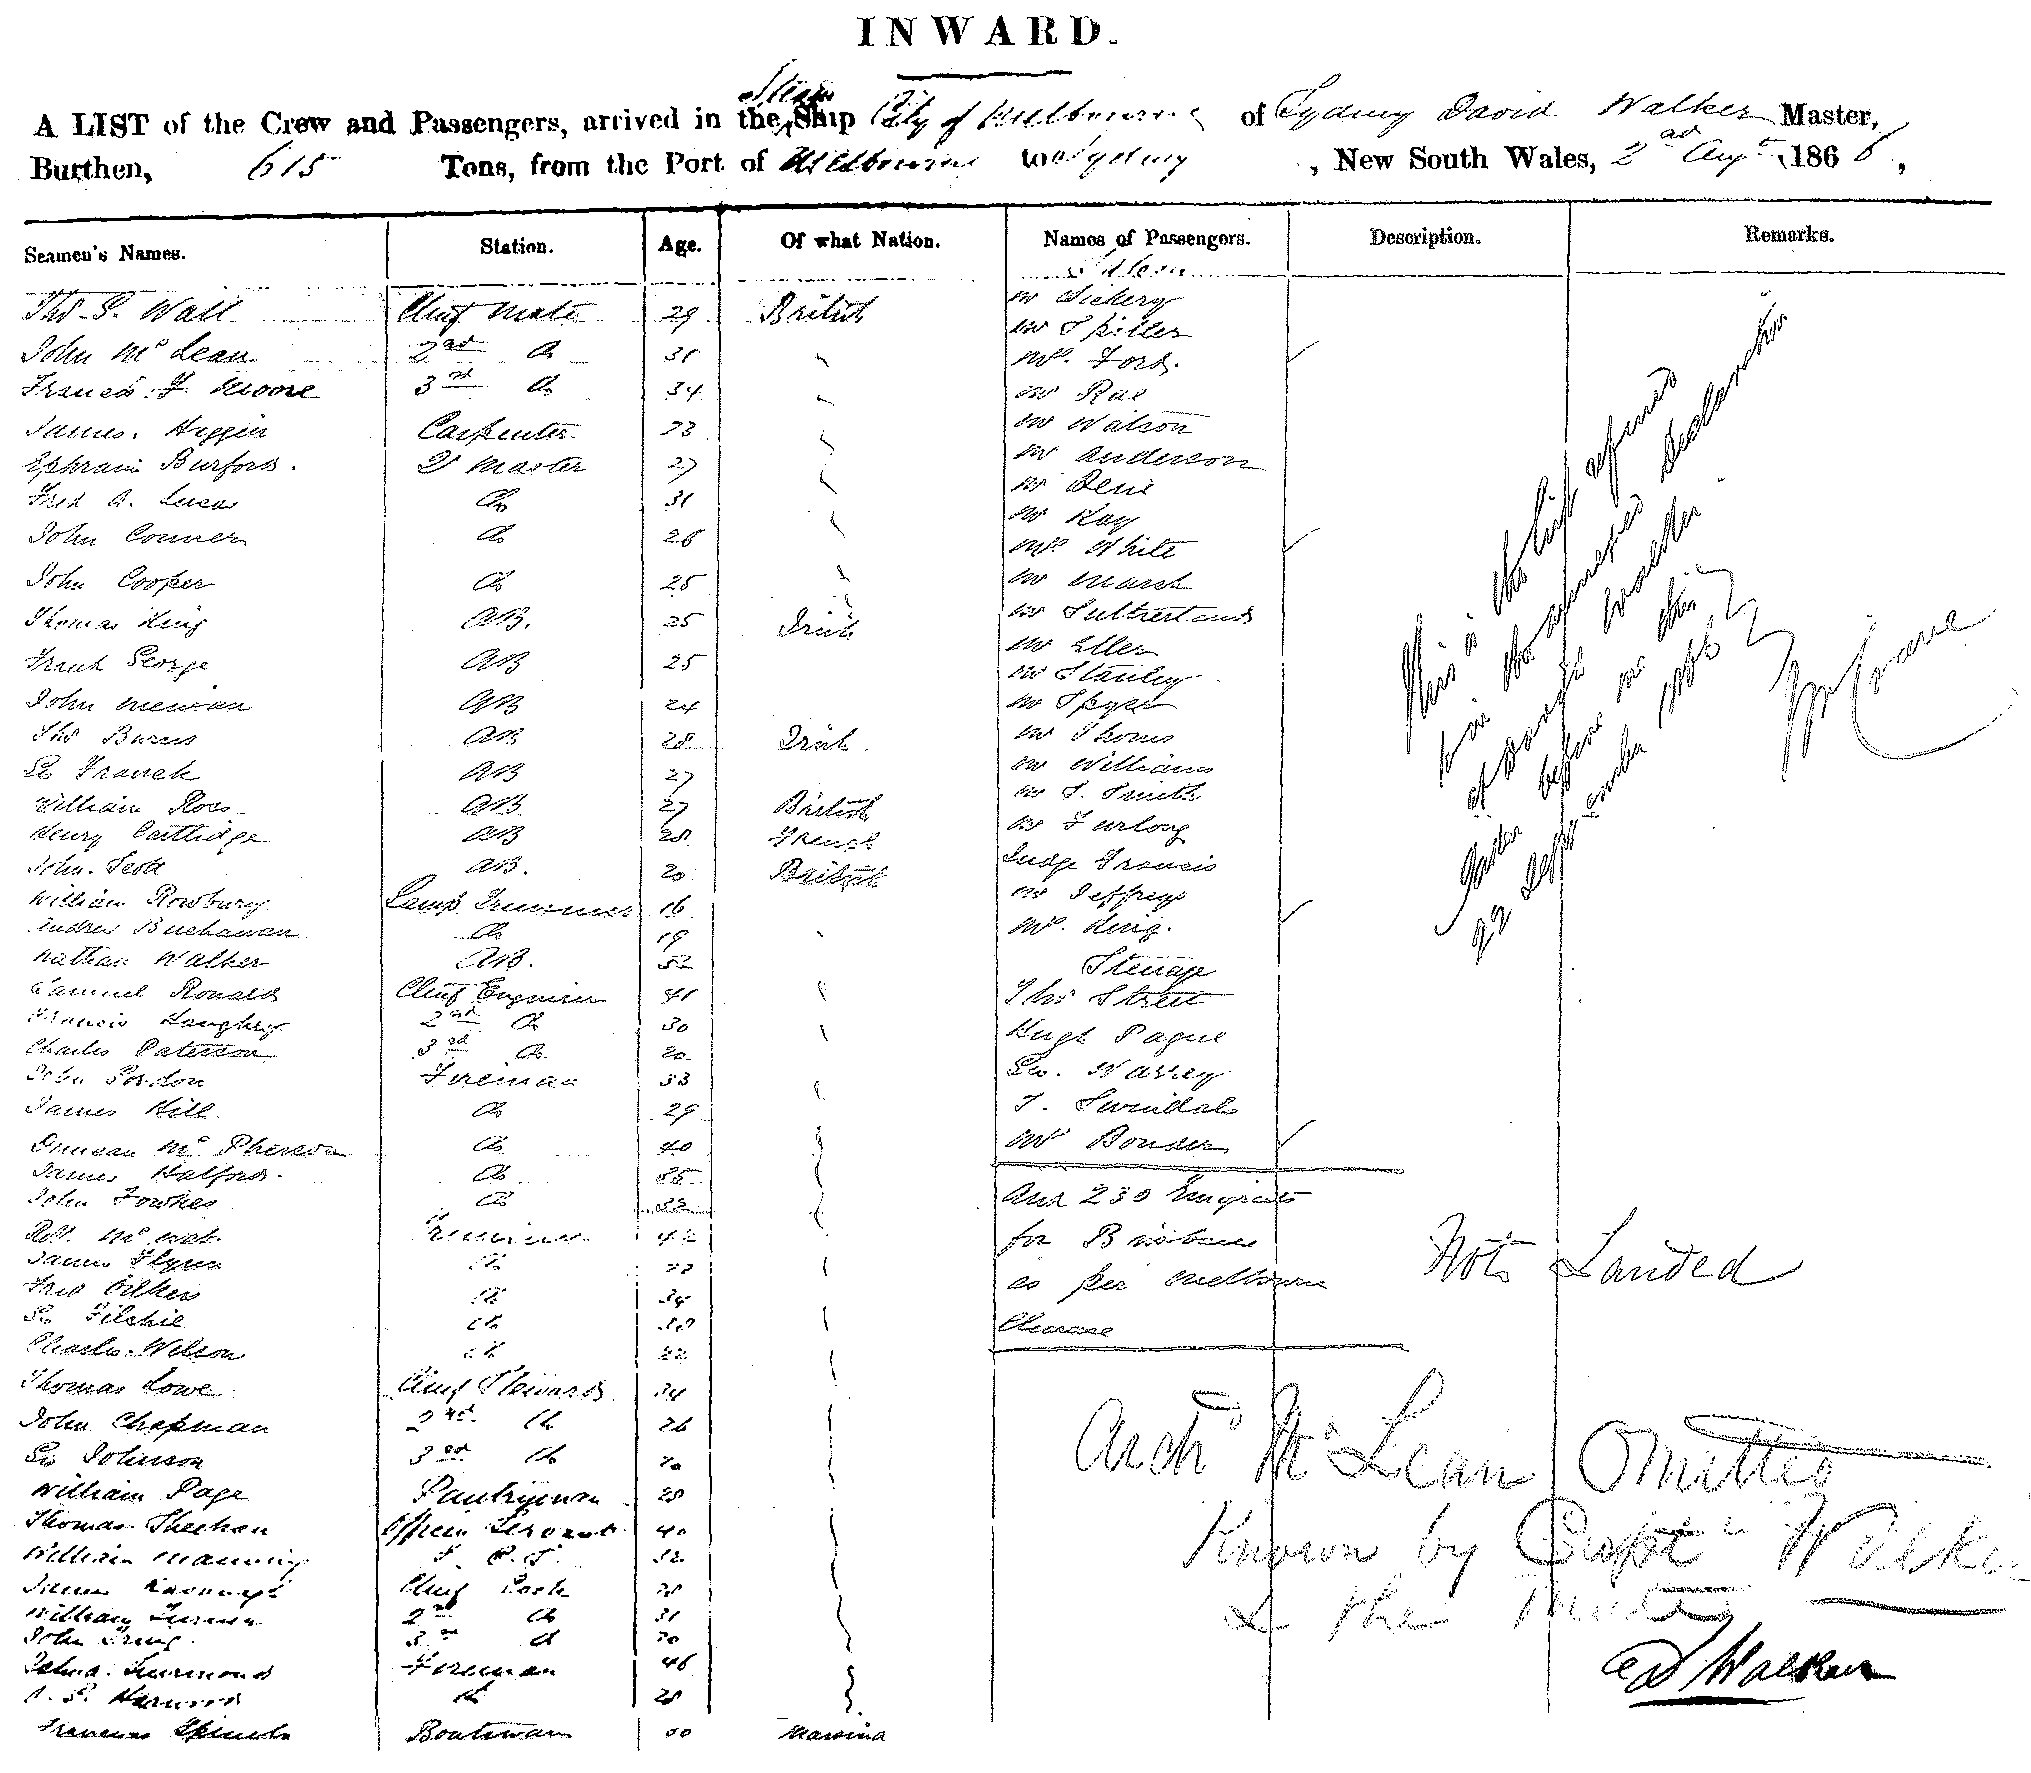 INWARD.
A LIST of the Crew and Passengers, arrived in the Steam Ship City of Melbourne of Sydney David Walker Master,
Burthen, 615 Tons, from the Port of Melbourne to Sydney, New South Wales, 2nd Augt 1866,
Seamen's Names. Station. Age. Of what Nation. Names of Passengers. Description. Remarks.
Saloon
Thos. S. Wall Chief Mate 29 British
John Mc Lean 2nd Do 31
Francis. F. Moore 3rd Do 34
James. Higgin Carpenter 33
Ephraim Burford. Q Master 27
Fred A. Lucas Do 31
John Conner Do 26
John Cooper Do 25
Thomas King AB. 25 Irish
Frank George AB 25
John AB 24
Thos Burns AB 28 Irish
Geo Franck AB 27
William Ross AB 27 British
Henry Cartlidge AB 28 French
John. Scott AB. 20 British
William Rowbury Lamp Trimmer 16
Andrew Buchanan Do 19
Nathan Walker AB. 52
Samuel Ronald Chief Engineer 41
Francis Laughry 2nd Do 30
Charles Paterson 3rd Do 20
John Gordon Fireman 33
James Hill Do 29
Duncan Mc Pherson Do 40
James Halford. Do 35
John Fowkes Do 32
Robt. Mc Trimmer
James Flynn Do
Fred Do 34
Geo Do
Charles. Wilson Do 22
Thomas Lowe Chief Steward 34
John Chapman 2nd Do 26
Geo Johnson 3rd Do 20
William Page Pantryman 28
Thomas Sheehan Officers Servant 40
William Manning 32
James Kavanagh Chief Cook
William Turner 2nd Do 31
John 3rd Do 30
Fireman 46
Do 28
Boatswain
Mr Vickery
Mr Spiller
Mrs. Ford.
Mr Rae
Mr Watson
Mr Anderson
Mr
Mr Kay
Mrs White
Mr Marsh
Mr Sutherland
Mr Eller
Mr Stanley
Mr Spyer
Mr Thoms
Mr Williams
Mr S. Smith
Mr Furlong
Judge Francis
Mr Jeffreys
Mrs. King.
Steerage
Thos Street
Hugh Pague
Geo. Warrey
T. Swindal
Mr Bonser
And 230 Emigrants
for Brisbane
as per Melbourne
Clearance
This is the list referred
to in the annexed declaration
of David Walker
before me this
September
Not Landed
Archd McLean Omitted
Known by Captn Walker
& the Mate
D Walker